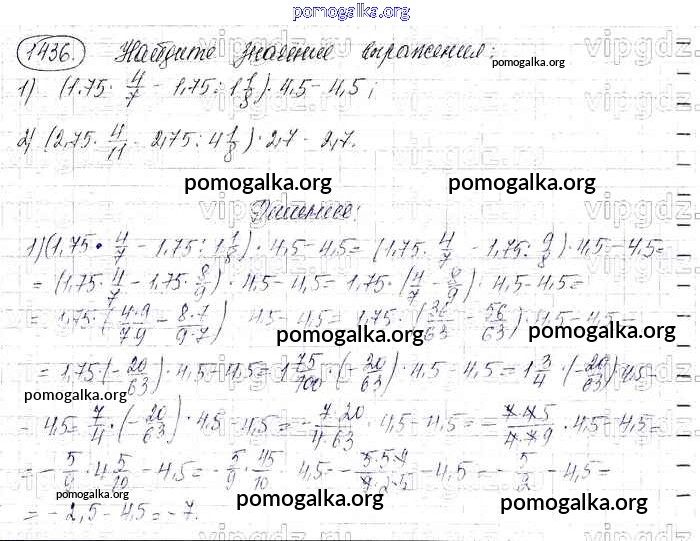 pomogalka.org
1436. Найдите значение выражения:
1) (1,75 · 4/7 - 1,75 : 1 1/8) · 4,5 - 4,5;
2) (2,75 · 4/11 - 2,75 : 4 1/8) · 2,7 - 2,7.
pomogalka.org
pomogalka.org pomogalka.org
Решение:
1) (1,75 · 4/7 - 1,75 : 1 1/8) · 4,5 - 4,5 = (1,75 · 4/7 - 1,75 : 9/8) · 4,5 - 4,5 =
= (1,75 · 4/7 - 1,75 · 8/9) · 4,5 - 4,5 = 1,75 · (4/7 - 8/9) · 4,5 - 4,5 =
= 1,75 · (4·9/7·9 - 8·7/9·7) · 4,5 - 4,5 = 1,75 · (36/63 - 56/63) · 4,5 - 4,5 =
pomogalka.org pomogalka.org
= 1,75 · (-20/63) · 4,5 - 4,5 = 1 75/100 · (-20/63) · 4,5 - 4,5 = 1 3/4 · (-20/63) · 4,5 -
pomogalka.org
- 4,5 = 7/4 · (-20/63) · 4,5 - 4,5 = - 7·20/4·63 · 4,5 - 4,5 = - 7·4·5/4·7·9 · 4,5 - 4,5 =
= - 5/9 · 4 5/10 - 4,5 = - 5/9 · 45/10 - 4,5 = - 5·5·9/9·2·5 - 4,5 = - 5/2 - 4,5 =
pomogalka.org pomogalka.org pomogalka.org
= - 2,5 - 4,5 = - 7.